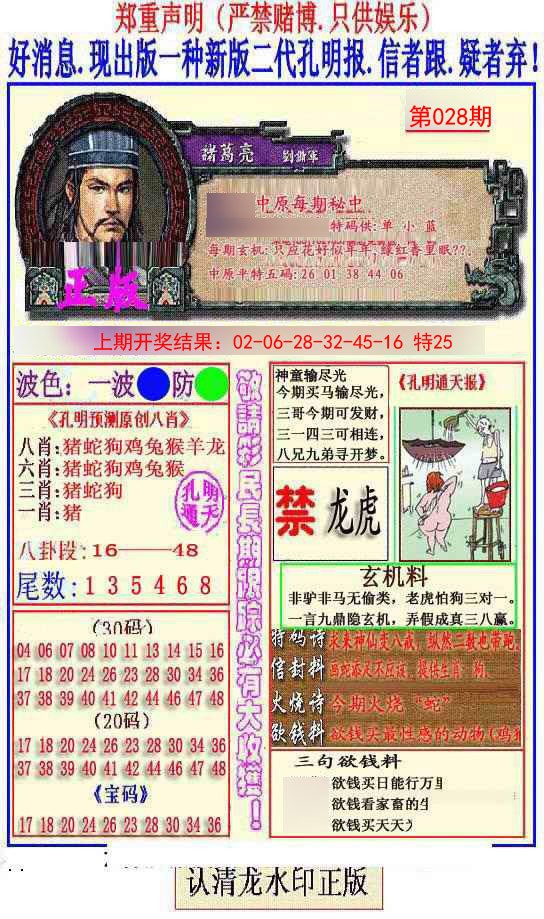 郑重声明（严禁赌博.只供娱乐）
好消息.现出版一种新版二代孔明报.信者跟.疑者弃！
第028期
諸葛亮 劉備軍
中原每期秘中
特码供:单 小 蓝
每期玄机:只应花好似年年,绿红香里眠??.
中原平特五码:26 01 38 44 06
正版
上期开奖结果：02-06-28-32-45-16 特25
波色：一波 防
《孔明预测原创八肖》
八肖:猪蛇狗鸡兔猴羊龙
六肖:猪蛇狗鸡兔猴
三肖:猪蛇狗
一肖:猪
孔明
通天
八卦段:16———48
尾数:1 3 5 4 6 8
(30码)
04 06 07 08 10 11 13 14 15 16
17 18 20 24 26 23 28 30 34 36
37 38 39 40 41 42 44 46 47 48
(20码)
17 18 20 24 26 23 28 30 34 36
37 38 39 40 41 42 44 46 47 48
《宝码》
17 18 20 24 26 23 28 30 34 36
敬請彩民長期跟踪必有大收獲！
神童输尽光
今期买马输尽光,
三哥今期可发财,
三一四三可相连,
八兄九弟寻开梦。
《孔明通天报》
禁 龙虎
玄机料
非驴非马无偷类，老虎怕狗三对一。
一言九鼎隐玄机，弄假成真三八赢。
特码诗 未来神仙变八戒，纵然二数也带跑.
信封料 画蛇添足不应该，提供生肖：狗.
火烧诗 今期火烧“蛇”
欲钱料 欲钱买最性感的动物(鸡猪
三句欲钱料
欲钱买日能行万里
欲钱看家畜的生
欲钱买天天
认清龙水印正版